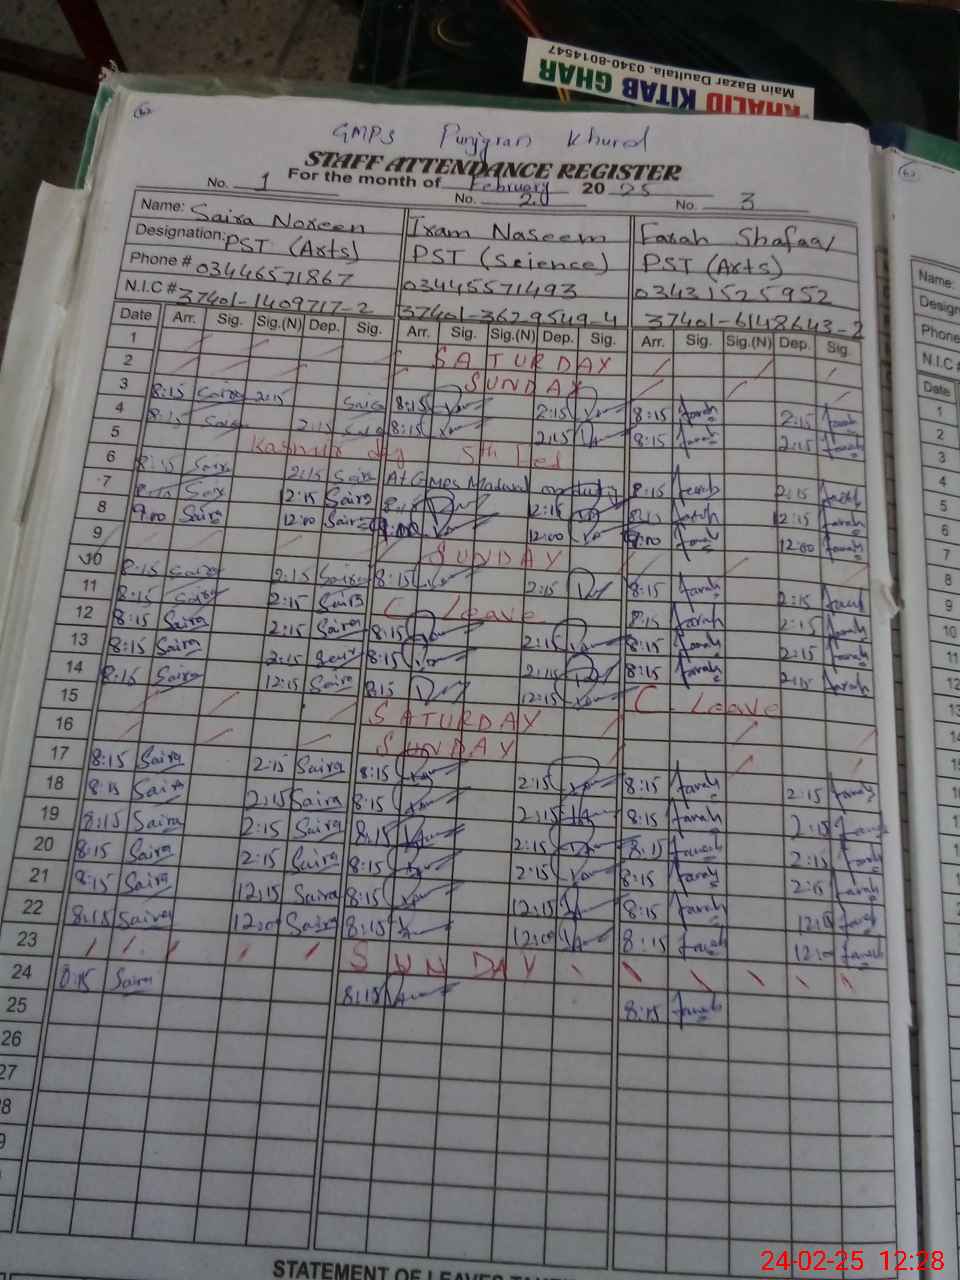 Main Bazar Daultala. 0340-8014547
KHALID KITAB GHAR
GMPS Punjgran Khurd
STAFF ATTENDANCE REGISTER
For the month of February 2025
No. 1 No. 2 No. 3
Name: Saira Noreen Iram Naseem Farah Shafaq
Designation: PST (Arts) PST (Science) PST (Arts)
Phone # 03446571867 03445571493 03431525952
N.I.C # 37401-1409717-2 37401-3629549-4 37401-6148643-2
Date Arr. Sig. Sig.(N) Dep. Sig. Arr. Sig. Sig.(N) Dep. Sig. Arr. Sig. Sig.(N) Dep. Sig.
1 SATURDAY
2 SUNDAY
3 8:15 Saira 2:15 Saira 8:15 2:15 8:15 Farah 2:15 Farah
4 8:15 Saira 2:15 Saira 8:15 2:15 8:15 Farah 2:15 Farah
5 Kashmir day 5th Feb
6 8:15 Saira 2:15 Saira At GMPS on duty 8:15 Farah 2:15 Farah
7 8:15 Saira 12:15 Saira 8:15 12:15 8:15 Farah 12:15 Farah
8 9:00 Saira 12:00 Saira 9:00 12:00 9:00 Farah 12:00 Farah
9 SUNDAY
10 8:15 Saira 2:15 Saira 8:15 2:15 8:15 Farah 2:15 Farah
11 8:15 Saira 2:15 Saira C Leave 8:15 Farah 2:15 Farah
12 8:15 Saira 2:15 Saira 8:15 2:15 8:15 Farah 2:15 Farah
13 8:15 Saira 2:15 Saira 8:15 2:15 8:15 Farah 2:15 Farah
14 8:15 Saira 12:15 Saira 8:15 12:15 C. Leave
15 SATURDAY
16 SUNDAY
17 8:15 Saira 2:15 Saira 8:15 2:15 8:15 Farah 2:15 Farah
18 8:15 Saira 2:15 Saira 8:15 2:15 8:15 Farah 2:15 Farah
19 8:15 Saira 2:15 Saira 8:15 2:15 8:15 Farah 2:15 Farah
20 8:15 Saira 2:15 Saira 8:15 2:15 8:15 Farah 2:15 Farah
21 8:15 Saira 12:15 Saira 8:15 12:15 8:15 Farah 12:15 Farah
22 8:15 Saira 12:00 Saira 8:15 12:00 8:15 Farah 12:00 Farah
23 SUNDAY
24 8:15 Saira 8:15 8:15 Farah
25
26
27
28
STATEMENT OF LEAVES
Name:
Phone
N.I.C #
Date
1
2
3
4
5
6
7
8
9
10
11
12
13
14
24-02-25 12:28